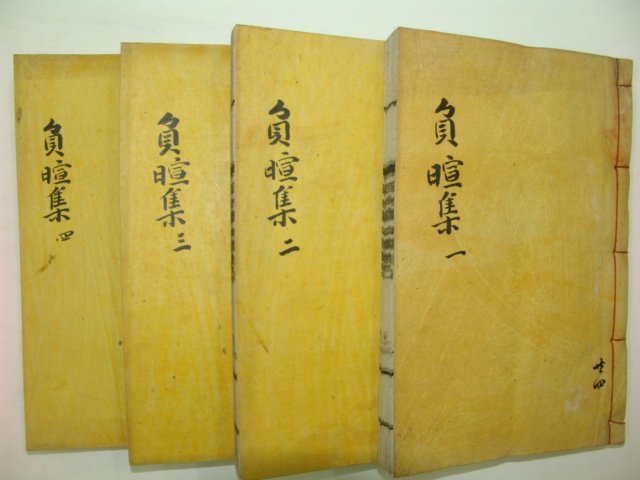 負暄集 一
共四
負暄集 二
負暄集 三
負暄集 四